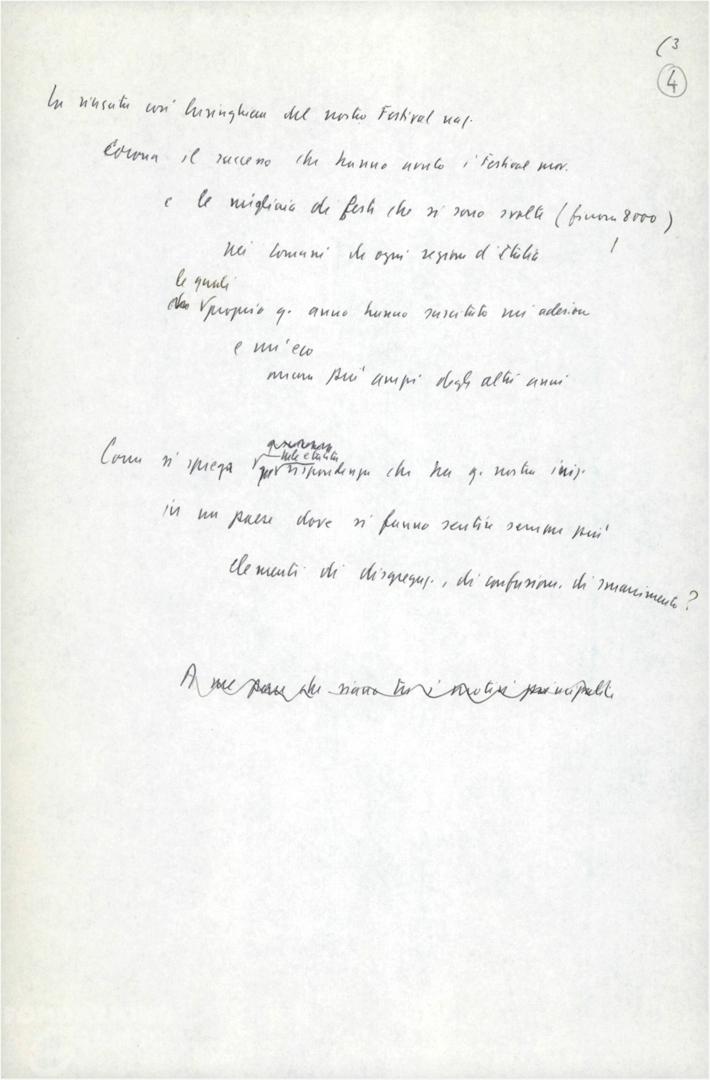 (3
4
La riuscita così lusinghiera del nostro Festival naz.
corona il successo che hanno avuto i Festival prov.
e le migliaia di feste che si sono svolte (finora 8000)
nei comuni di ogni regione d'Italia
le quali
proprio q. anno hanno suscitato un'adesione
e un'eco
ancora più ampi degli altri anni
Come si spiega
rispondenza che ha q. nostra iniz.
in un paese dove si fanno sentire sempre più
elementi di disgregaz., di confusione, di smarrimento?
A me pare che siano tre i motivi principali